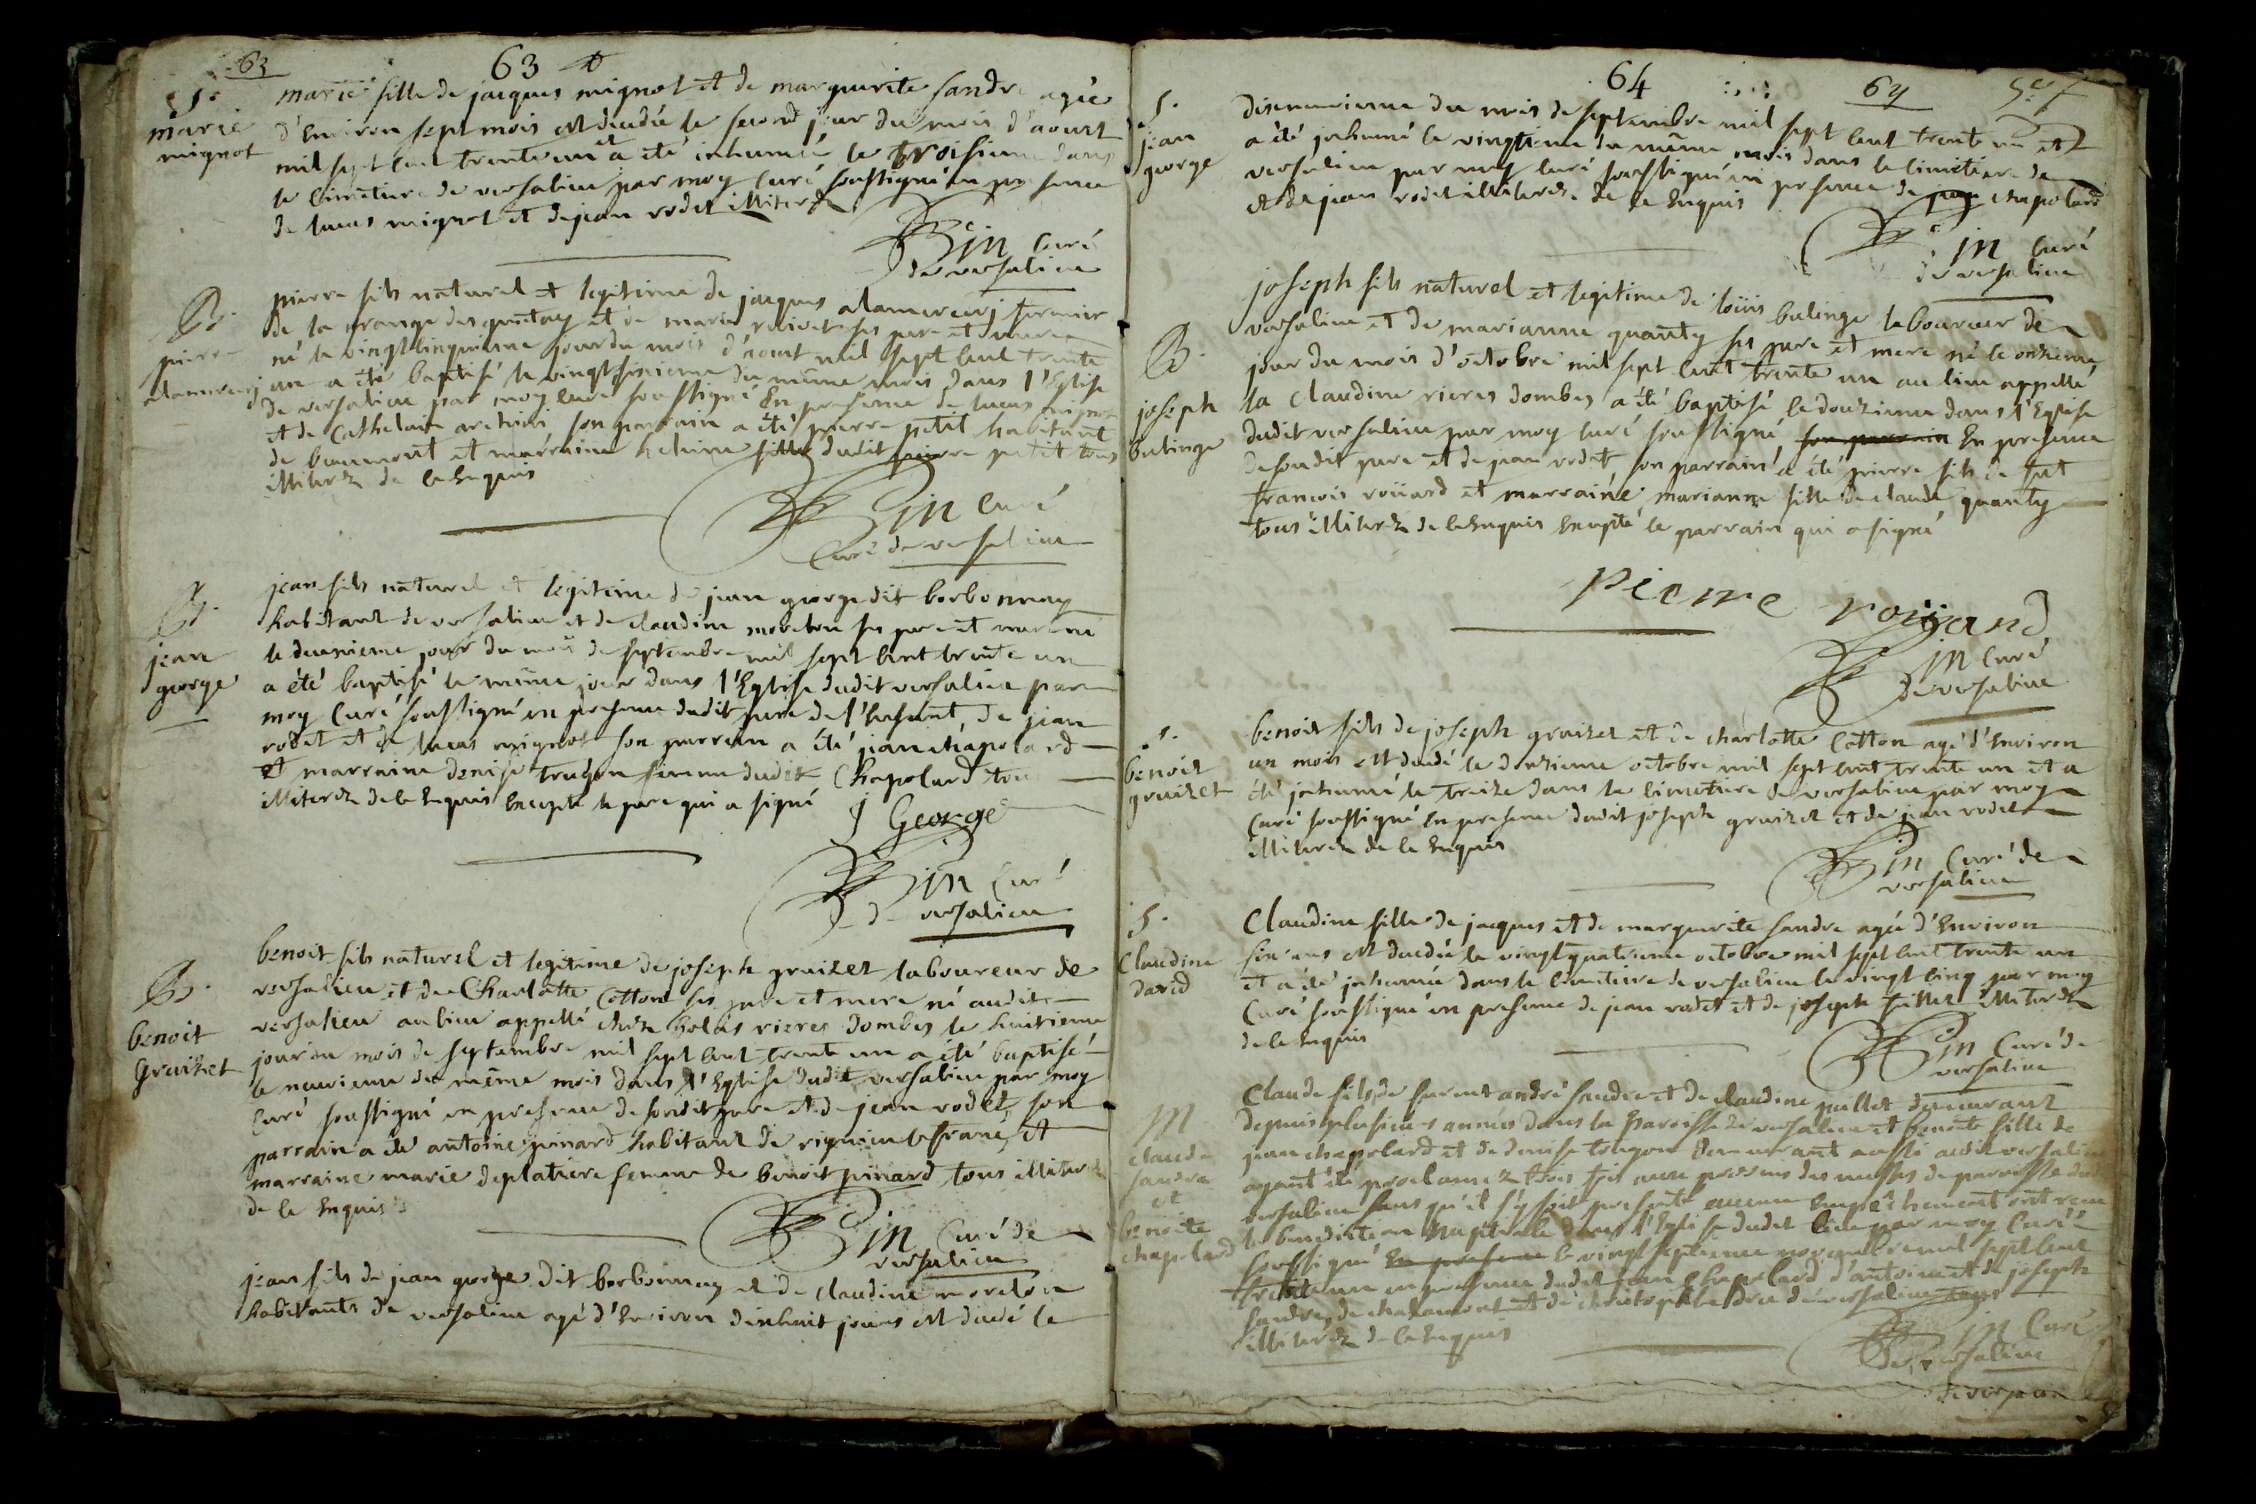 63
63
S.
marie
mignot
marie fille de jacques mignot et de marguerite sandre agée
d'Environ sept mois est décédée le second jour du mois d'aoust
mil sept cent trente un et a été inhumée le troisieme dans
le cimetiere de versalieu par moy curé soussigné en presence
de lucas mignot et de jean rodet illiterez
Bin curé
de versalieu
B.
pierre
alamercerj
pierre fils naturel et legitime de jacques alamercerj fermier
de la grange des et de marie ses pere et mere
né le vingtcinquieme jour du mois d'aoust mil sept cent trente
une a été baptisé le vingtsixieme du même mois dans l'Eglise
de versalieu par moy curé soussigné En presence de lucas mignot
et de Cathelain son parrain a été pierre petit habitant
de beaumont et marraine helene fille dudit pierre petit tous
illiterez de ce Enquis
Bin curé
Curé de versalieu
B.
jean
george
jean fils naturel et legitime de jean george dit borbonnay
habitant de versalieu et de claudine moreton ses pere et mere né
le deuxieme jour du mois de septembre mil sept cent trente un
a été baptisé le même jour dans l'Eglise dudit versalieu par
moy Curé soussigné en presence dudit pere de l'Enfant, de jean
rodet et de lucas mignot son parrain a été jean chapolard
et marraine denise trugon femme dudit Chapolard tous
illiterez de ce Enquis Excepté le pere qui a signé
J George
Bin Curé
de versalieu
B.
benoit
Graizet
benoit fils naturel et legitime de joseph graizet laboureur de
versalieu et de Charlotte Cotton ses pere et mere né audit
versalieu au lieu appellé chez kolas rieres Dombes le huitieme
jour du mois de septembre mil sept cent trente un a été baptisé
le neuvieme du même mois dans l'Eglise dudit versalieu par moy
Curé soussigné en presence de sondit pere et de jean rodet, son
parrain a été antoine pinard habitant de rignieu le franc, et
marraine marie deplatiere femme de benoit pinard tous illiterez
de ce Enquis
Bin Curé de
versalieu
jean fils de jean george dit borbonnay et de claudine moreton
habitants de versalieu agé d'Environ dixhuit jours est décédé le
64
64
S.
jean
george
dixneuvieme du mois de septembre mil sept cent trente un et
a été inhumé le vingtieme du même mois dans le cimetiere de
versalieu par moy curé soussigné en presence de jean chapolard
et de jean rodet illiterez de ce Enquis
Bin Curé
de versalieu
B.
joseph
balinge
joseph fils naturel et legitime de loüis balinge laboureur de
versalieu et de marianne quanty ses pere et mere né le onzieme
jour du mois d'octobre mil sept cent trente un au lieu appellé
la Claudine rieres dombes a été baptisé le douzieme dans l'Eglise
dudit versalieu par moy curé soussigné, son parrain En presence
de sondit pere et de jean rodet, son parrain a été pierre fils de fut
francois roüard et marraine marianne fille de claude quanty
tous illiterez de ce Enquis Excepté le parrain qui a signé
pierre roüjard
Bin Curé
de versalieu
S.
benoit
graizet
benoit fils de joseph graizet et de charlotte Cotton agé d'Environ
un mois est decedé le douzieme octobre mil sept cent trente un et a
été inhumé le treize dans le cimetiere de versalieu par moy
curé soussigné En presence dudit joseph graizet et de jean rodet
illiterez de ce Enquis
Bin Curé de
versalieu
S.
Claudine
david
Claudine fille de jacques et de marguerite sandre agée d'Environ
six ans est decedée le vingtquatrieme octobre mil sept cent trente un
et a été inhumée dans le Cimetiere de versalieu le vingt cinq par moy
Curé soussigné en presence de jean rodet et de joseph illiterez
de ce Enquis
Bin Curé de
versalieu
M
claude
sandre
et
benoite
chapolard
Claude fils de andré sandre et de claudine pullet demeurant
depuis plusieurs années dans la paroisse de versalieu et benoite fille de
jean chapolard et de denise trugon demeurant aussi audit versalieu
ayant été proclamez trois fois aux prosnes des messes de paroisse dudit
versalieu sans qu'il s'y soit presenté aucun Empêchement ont receu
la benediction Nuptiale dans l'Eglise dudit lieu par moy Curé
soussigné En presence le vingt septieme novembre mil sept cent
trente un en presence dudit jean chapolard d'antoine et de joseph
sandre de chalamont et de christophle de versalieu tous
illiterez de ce Enquis
Bin Curé
de versalieu